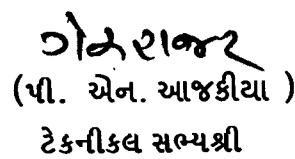 (પી. એન. આજકીયા )
ટેકનીકલ સભ્યશ્રી